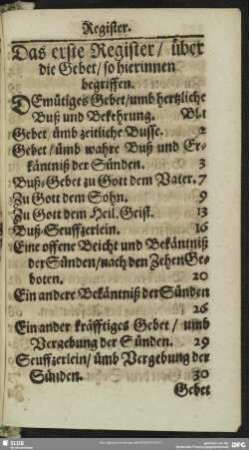 Register.
Das erste Register/ über
die Gebet/ so hierinnen
begriffen.
DEmütiges Gebet/umb hertzliche
Buß und Bekehrung. Bl.1
Gebet/ ümb zeitliche Busse. 2
Gebet/ ümb wahre Buß und Er-
käntniß der Sünden. 3
Buß-Gebet zu Gott dem Vater. 7
Zu Gott dem Sohn. 9
Zu Gott dem Heil. Geist. 13
Buß-Seuffzerlein. 16
Eine offene Beicht und Bekäntniß
der Sünden/nach den Zehen Ge-
boten. 20
Ein andere Bekäntniß der Sünden
26
Ein ander kräfftiges Gebet/ umb
Vergebung der Sünden. 29
Seuffzerlein/ ümb Vergebung der
Sünden. 30
Gebet
SLUB